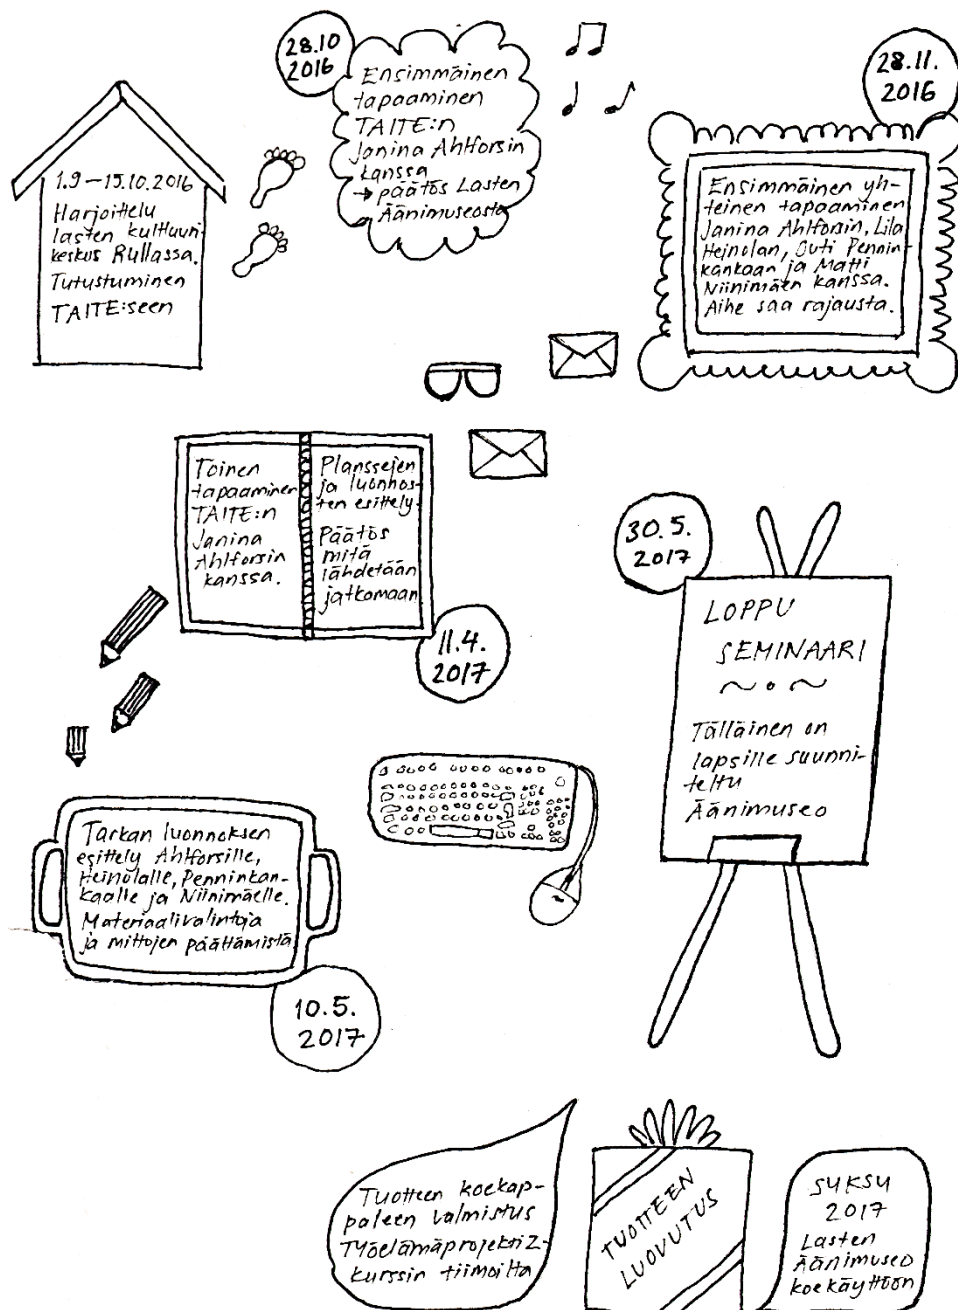 1.9–15.10.2016
Harjoittelu
lasten kulttuuri-
keskus Rullassa.
Tutustuminen
TAITE:seen
28.10
2016
Ensimmäinen
tapaaminen
TAITE:n
Janina Ahlforsin
kanssa
→ päätös Lasten
Äänimuseosta
28.11.
2016
Ensimmäinen yh-
teinen tapaaminen
Janina Ahlforsin, Lila
Heinolan, Outi Pennin-
kankaan ja Matti
Niinimäen kanssa.
Aihe saa rajausta.
Toinen
tapaaminen
TAITE:n
Janina
Ahlforsin
kanssa.
Planssejen
ja luonnos-
ten esittely.
Päätös
mitä
lähdetään
jatkomaan
11.4.
2017
Tarkan luonnoksen
esittely Ahlforsille,
Heinolalle, Penninkan-
kaalle ja Niinimäelle.
Materiaalivalintoja
ja mittojen päättämistä
10.5.
2017
30.5.
2017
LOPPU
SEMINAARI
~ o ~
Tälläinen on
lapsille suunni-
teltu
Äänimuseo
Tuotteen koekap-
paleen valmistus
Työelämäprojekti 2-
kurssin tiimoilta
TUOTTEEN
LUOVUTUS
SYKSY
2017
Lasten
Äänimuseo
koekäyttöön